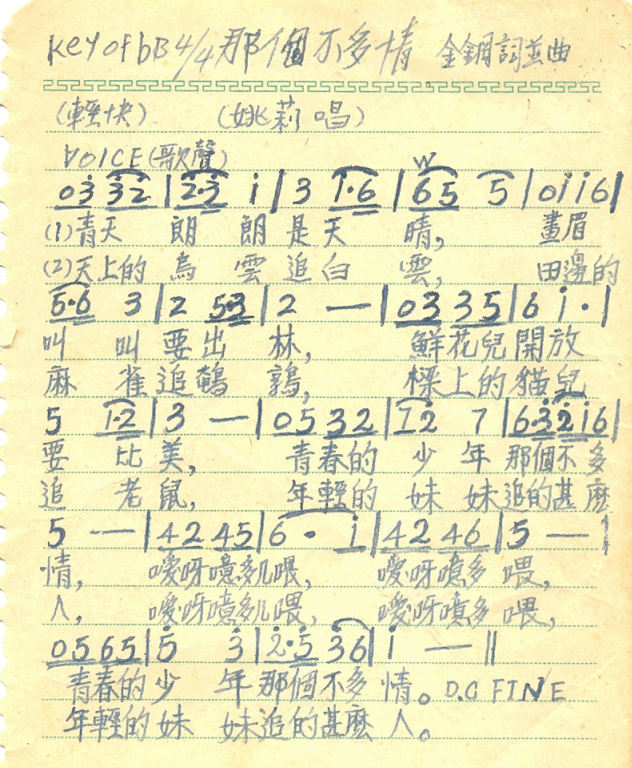 Key of bB 4/4 那個不多情 金鋼詞並曲
(輕快) (姚莉唱)
VOICE(歌聲)
03 32 | 2·3 i | 3 i·6 | 65 5 | 0ii6 |
(1)青天 朗 朗是天 晴, 畫眉
(2)天上的 烏 雲追白 雲, 田邊的
5·6 3 | 2 53 | 2 — | 03 35 | 6 i· |
叫 叫要出 林, 鮮花兒開放
麻 雀追鵪 鶉, 樑上的貓兒
5 i·2 | 3 — | 05 32 | i2 7 | 6321 6 |
要 比美, 青春的 少 年 那個不多
追 老鼠, 年輕的 妹 妹追的甚麼
5 — | 42 45 | 6 · i | 42 46 | 5 — |
情, 噯呀噫多儿喂, 噯呀噫多 喂,
人, 噯呀噫多儿喂, 噯呀噫多 喂,
0565 | 5 3 | 2·5 36 | i — ||
青春的少 年那個不多 情。D.C FINE
年輕的妹 妹追的甚麼 人。